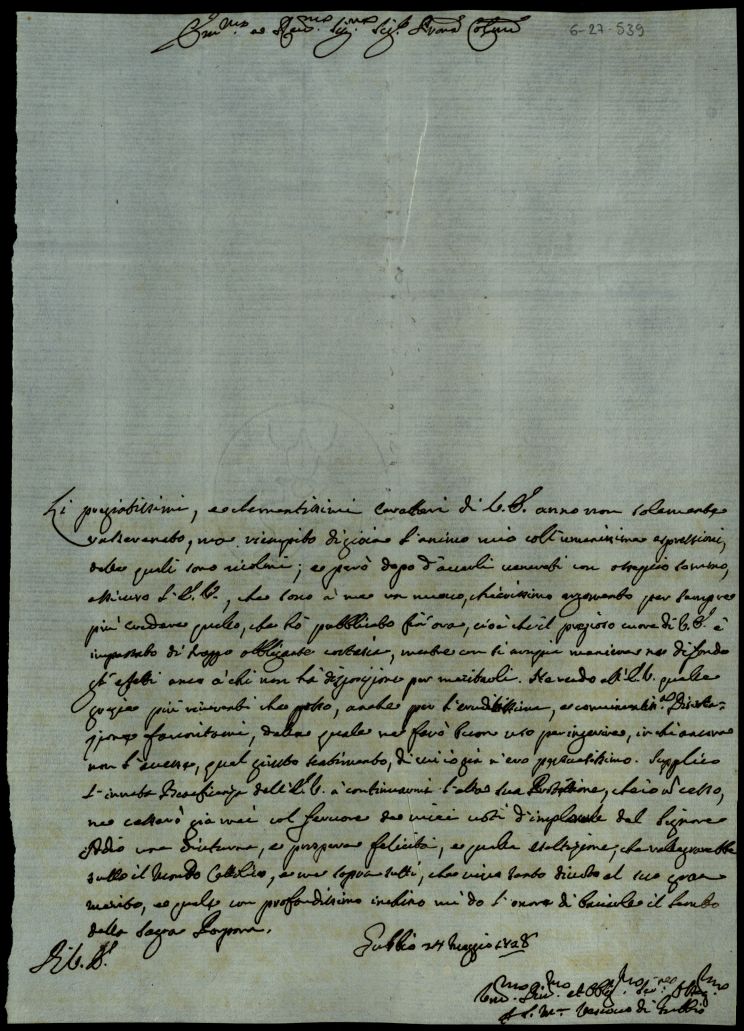 Em.mo e Rev.mo Sig.re Sig.r Pron Col.mo
6-27-539
Li pregiatissimi, e clementissimi caratteri di V.E. anno non solamente
rasserenato, ma riempito di gioia l'animo mio colle umanissime espressioni,
delle quali sono ricolmi; e però dopo d'averli venerati con ossequio sommo,
assicuro l'E.V., che sono à me un nuovo, chiarissimo argomento per sempre
più credere quello, che hò pubblicato fin'ora, cioè che il prezioso cuore di V.E. è
impastato di troppo obbligante cortesia, mentre con sì ampie maniere ne difonde
gl'effetti anco à chi non hà disposizione per meritarli. Ne rendo all'E.V. quelle
grazie più riverenti che posso, anche per l'eruditissima, e convincentis.a Disserta-
zione favoritami, della quale ne farò buon uso per ingerire, in chi ancora
non l'avesse, quel giusto sentimento, di cui io già n'ero persuasissimo. Supplico
l'innata Beneficenza dell'E.V. à continuarmi l'alta sua Protezzione, che io nè cesso,
nè cesserò già mai col fervore de miei voti d'implorarle dal Signore
Iddio una diuturna, e prospera felicità, e quella esaltazione, che rallegrarebbe
tutto il Mondo Cattolico, e me sopra tutti, che vivo tanto divoto al suo gran
merito, e quale con profondissimo inchino mi dò l'onore di baciarle il lembo
della Sagra Porpora.
Di V.E.
Gubbio 24 Maggio
Um.mo Div.mo et Obbl.mo Ser.re
Vescovo di Gubbio